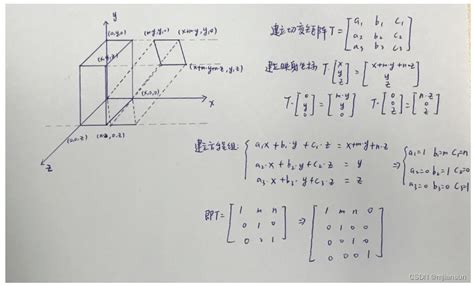 y
(0,y,0) (m·y,y,0) (x+m·y,y,0)
(0,y,z) (x+m·y+n·z,y,z)
(x,0,0)
x
(0,0,z) (x,0,z)
z
建立切变矩阵 T = [a₁ b₁ c₁
a₂ b₂ c₂
a₃ b₃ c₃]
建立映射坐标 T·[x y z] = [x+m·y+n·z y z]
T·[0 y 0] = [m·y y 0] T·[0 0 z] = [n·z 0 z]
建立方程组: { a₁·x + b₁·y + c₁·z = x+m·y+n·z
a₂·x + b₂·y + c₂·z = y
a₃·x + b₃·y + c₃·z = z
⇒ { a₁=1 b₁=m C₁=n
a₂=0 b₂=1 C₂=0
a₃=0 b₃=0 C₃=1
即T = [1 m n
0 1 0
0 0 1]
⇒ [1 m n 0
0 1 0 0
0 0 1 0
0 0 0 1]